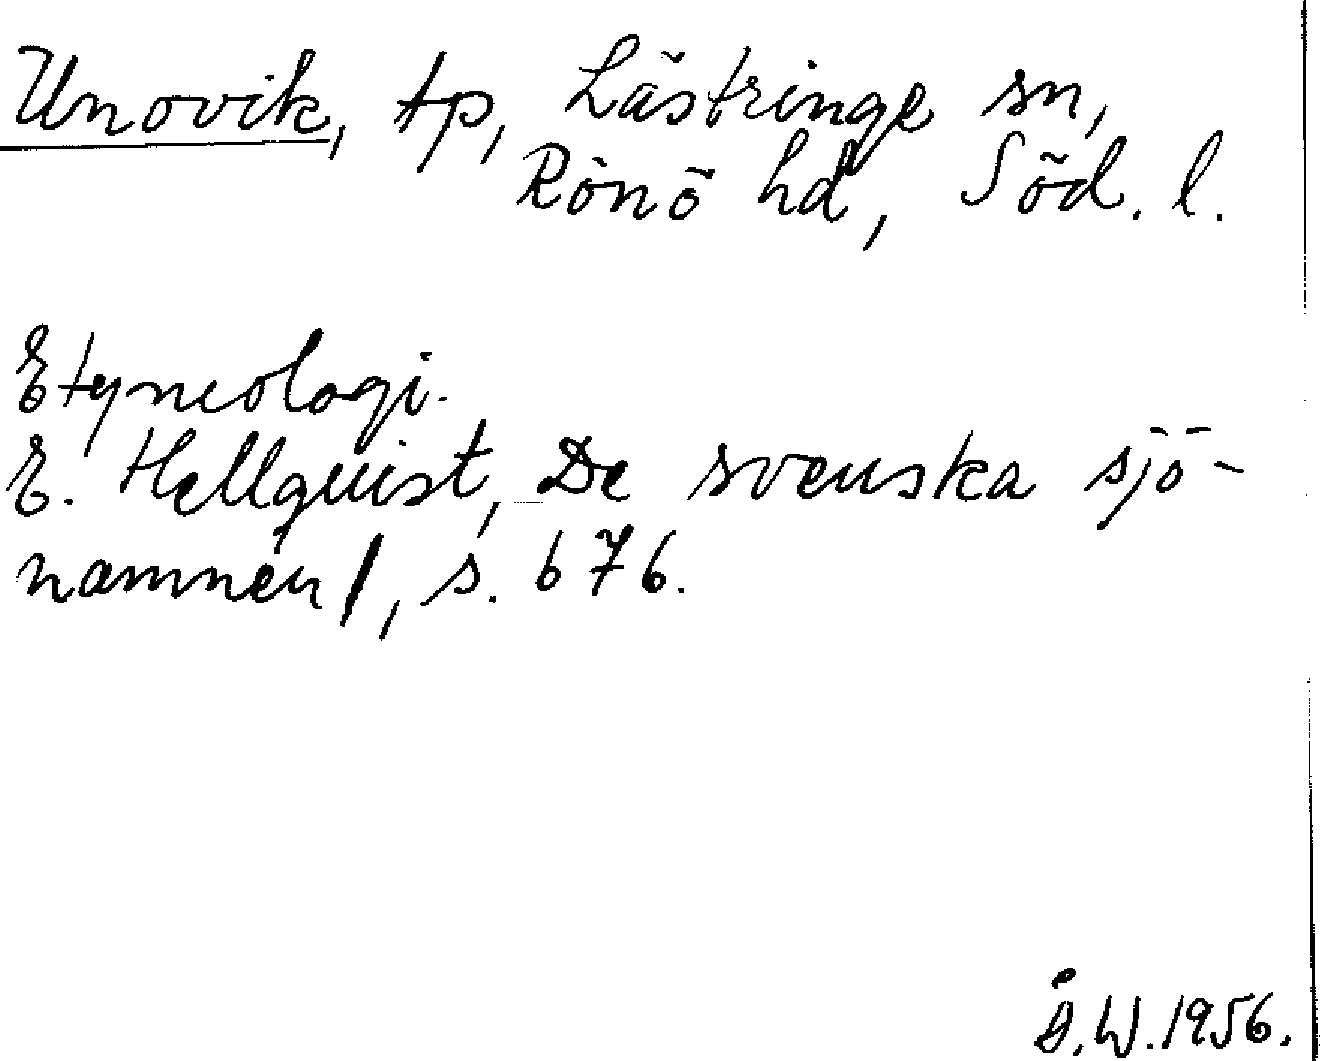 Unovik, tp, Lästringe sn,
Rönö hd, Söd. l.
Etymologi.
E. Hellquist, De svenska sjö-
namnen I, s. 676.
Å.W. 1956.